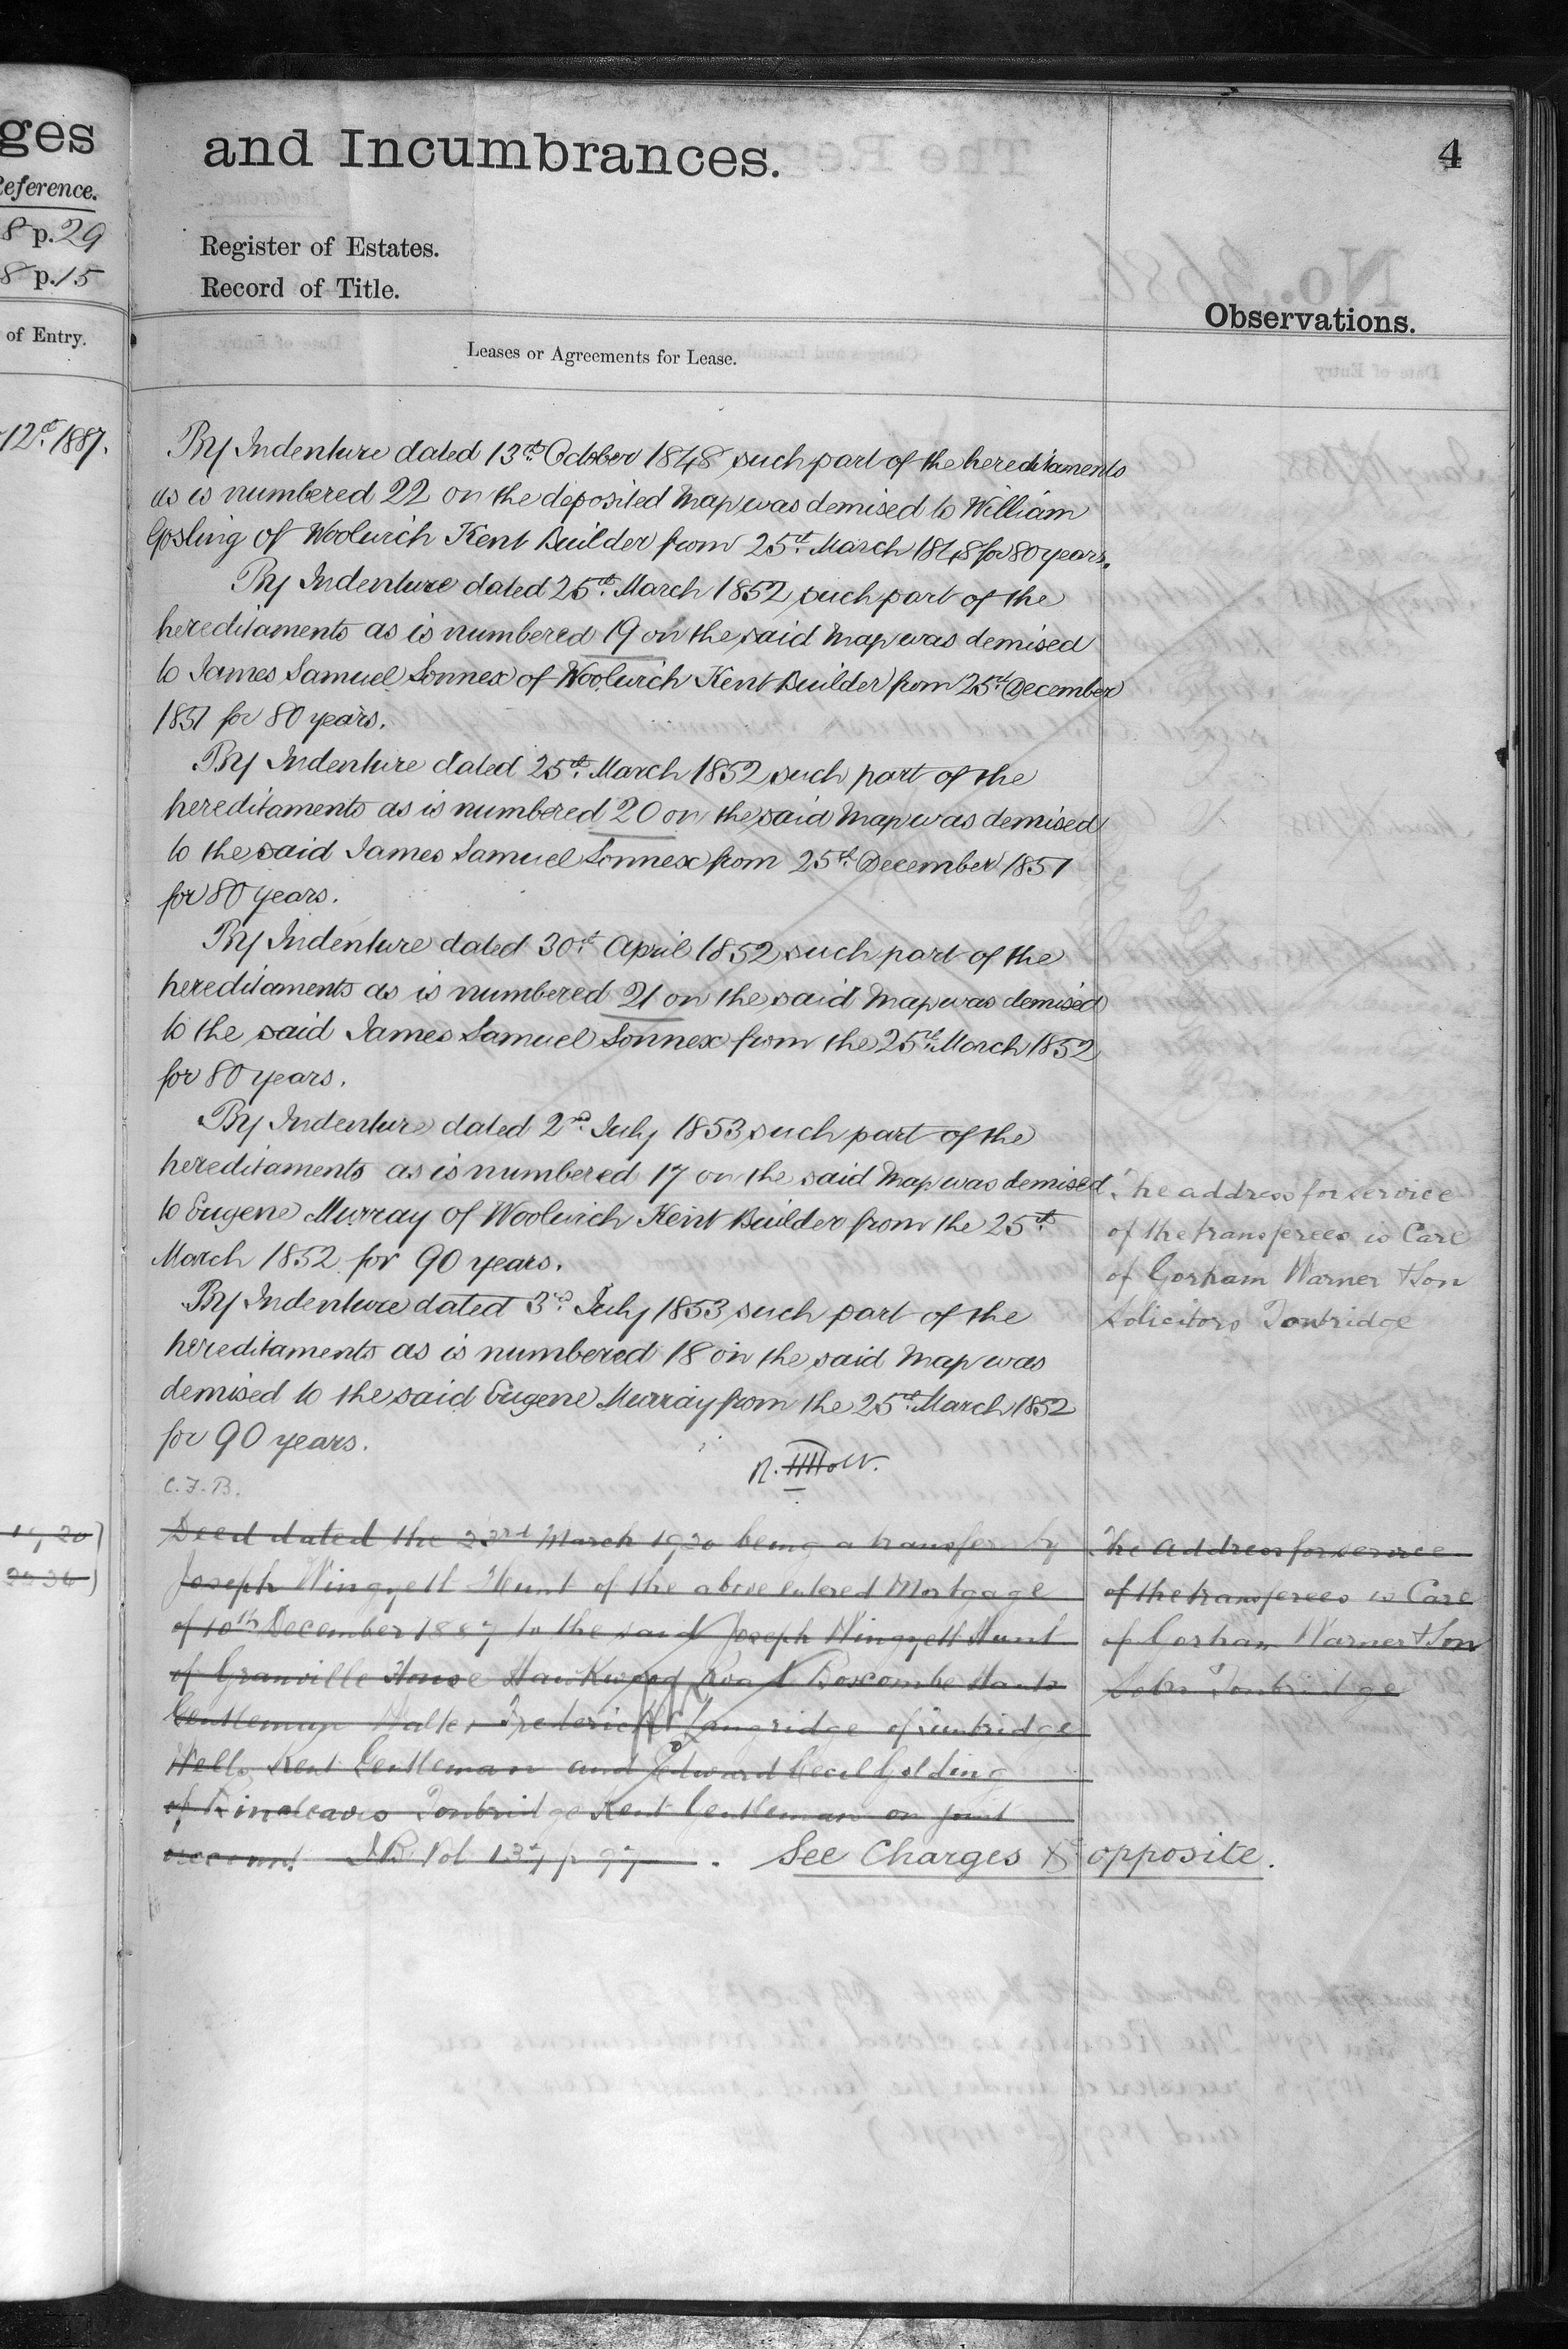 ges
Reference.
8 p. 29
8 p. 15
of Entry.
12th 1887.
and Incumbrances.
4
Register of Estates.
Record of Title.
Observations.
Leases or Agreements for Lease.
By Indenture dated 13th October 1848 such part of the hereditaments
as is numbered 22 on the deposited Map was demised to William
Gosling of Woolwich Kent Builder from 25th March 1848 for 80 years.
By Indenture dated 25th March 1852 such part of the
hereditaments as is numbered 19 on the said Map was demised
to James Samuel Sonnex of Woolwich Kent Builder from 25th December
1851 for 80 years.
By Indenture dated 25th March 1852 such part of the
hereditaments as is numbered 20 on the said Map was demised
to the said James Samuel Sonnex from 25th December 1851
for 80 years.
By Indenture dated 30th April 1852 such part of the
hereditaments as is numbered 21 on the said Map was demised
to the said James Samuel Sonnex from the 25th March 1852
for 80 years.
By Indenture dated 2nd July 1853 such part of the
hereditaments as is numbered 17 on the said Map was demised
to Eugene Murray of Woolwich Kent Builder from the 25th
March 1852 for 90 years.
By Indenture dated 3rd July 1853 such part of the
hereditaments as is numbered 18 on the said Map was
demised to the said Eugene Murray from the 25th March 1852
for 90 years.
C.F.B.
The address for service
of the transferees is Care
of Gorham Warner & Son
Solicitors Tonbridge
Deed dated the 23rd March 1920 being a transfer by
Joseph Wingyett Hunt of the above entered Mortgage
of 10th December 1887 to the said Joseph Wingyett Hunt
of Granville House Hawkwood Road Boscombe Hants
Gentleman Walter Frederick Langridge of Tunbridge
Wells Kent Gentleman and Edward Cecil Golding
of Tonbridge Kent Gentleman on joint
account I.B. Vol 137 p 97. See Charges &c opposite.
The Address for service
of the transferees is Care
of Gorham Warner & Son
Solrs Tonbridge